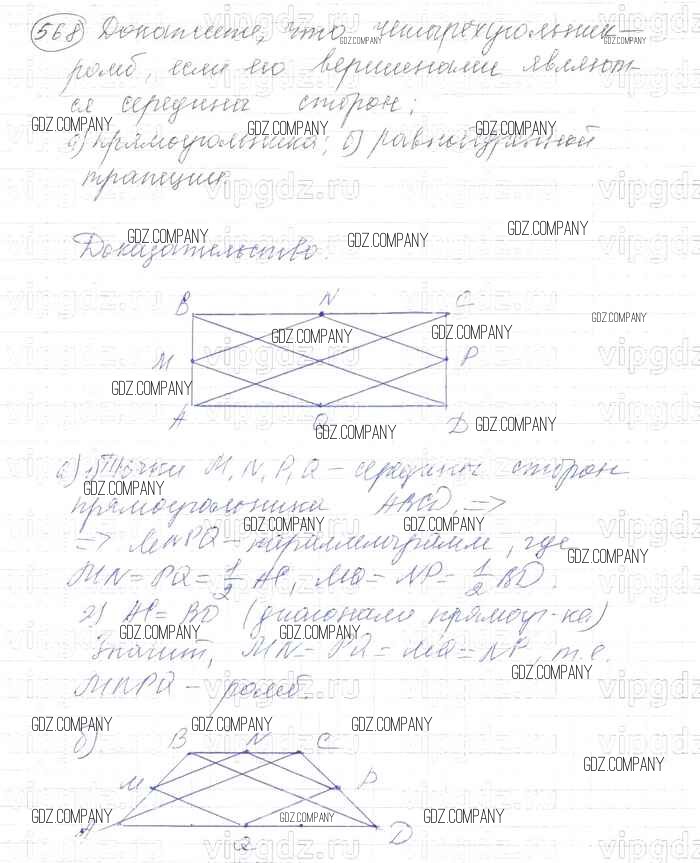 568 Докажите, что четырехугольник —
ромб, если его вершинами являют-
ся середины сторон:
а) прямоугольника; б) равнобедренной
трапеции.
Доказательство:
B N C
M P
A Q D
а) 1) Точки M, N, P, Q – середины сторон
прямоугольника ABCD, =>
=> MNPQ – параллелограмм, где
MN = PQ = 1/2 AC, MQ = NP = 1/2 BD.
2) AC = BD (диагонали прямоуг-ка)
Значит, MN = PQ = MQ = NP, т.е.
MNPQ – ромб.
б)
B N C
M P
A Q D
GDZ.COMPANY
vipgdz.ru